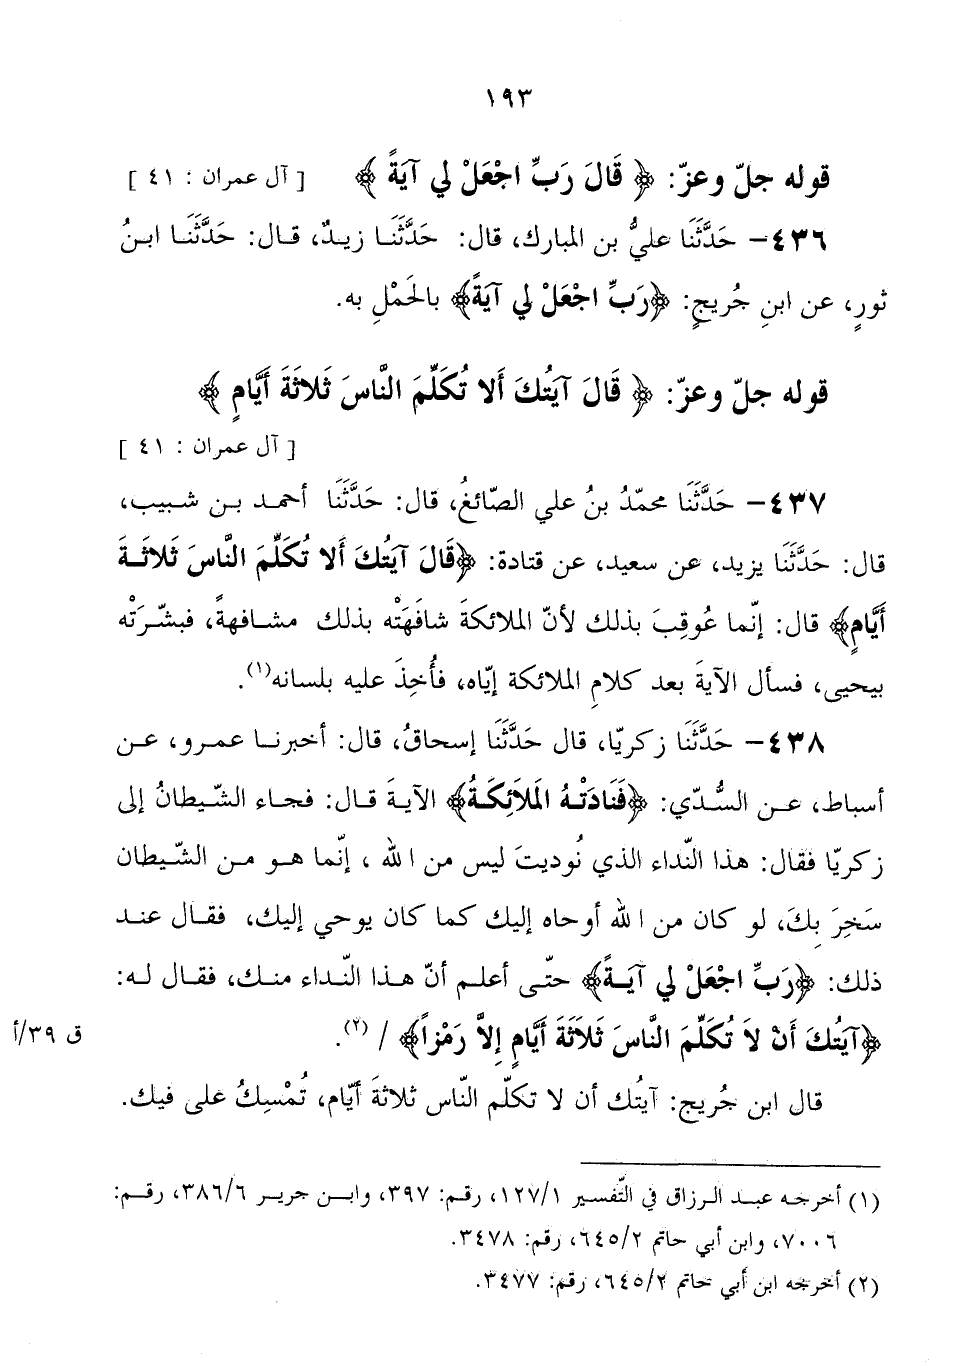 ١٩٣
قوله جلّ وعزّ: ﴿ قَالَ رَبِّ اجْعَلْ لي آيَةً ﴾ [ آل عمران : ٤١ ]
٤٣٦– حَدَّثَنَا عليُّ بن المبارك، قال: حَدَّثَنَا زيدٌ، قال: حَدَّثَنَا ابنُ
ثورٍ، عن ابنِ جُريجٍ: ﴿رَبِّ اجْعَلْ لي آيَةً﴾ بالحَمْلِ به.
قوله جلّ وعزّ: ﴿ قَالَ آيَتُكَ أَلا تُكَلِّمَ النَّاسَ ثَلاثَةَ أَيَّامٍ ﴾
[ آل عمران : ٤١ ]
٤٣٧– حَدَّثَنَا محمّدُ بنُ علي الصّائغُ، قال: حَدَّثَنَا أحمد بن شبيب،
قال: حَدَّثَنَا يزيد، عن سعيد، عن قتادة: ﴿قَالَ آيَتُكَ أَلا تُكَلِّمَ النَّاسَ ثَلاثَةَ
أَيَّامٍ﴾ قال: إنّما عُوقِبَ بذلك لأنّ الملائكةَ شافَهَتْه بذلك مشافهةً، فبشّرَتْه
بيحيى، فسأل الآيةَ بعد كلامِ الملائكة إيّاه، فأُخِذَ عليه بلسانه(١).
٤٣٨– حَدَّثَنَا زكريّا، قال حَدَّثَنَا إسحاقُ، قال: أخبرنا عمرو، عن
أسباط، عن السُّدّي: ﴿فَنَادَتْهُ المَلَائِكَةُ﴾ الآيةَ قال: فجاء الشّيطانُ إلى
زكريّا فقال: هذا النّداء الذي نُوديتَ ليس من الله ، إنّما هو من الشّيطان
سَخِرَ بِكَ، لو كان من الله أوحاه إليك كما كان يوحي إليك، فقال عند
ذلك: ﴿رَبِّ اجْعَلْ لي آيَةً﴾ حتّى أعلم أنّ هذا النّداء منك، فقال له:
﴿آيَتُكَ أَنْ لاَ تُكَلِّمَ النَّاسَ ثَلاَثَةَ أَيَّامٍ إِلاَّ رَمْزاً﴾ / (٢). ق ٣٩/أ
قال ابن جُريج: آيتُك أن لا تكلّم النّاس ثلاثةَ أيّام، تُمْسِكُ على فيك.
(١) أخرجه عبد الرزاق في التّفسير ١٢٧/١، رقم: ٣٩٧، وابن جرير ٣٨٦/٦، رقم:
٧٠٠٦، وابن أبي حاتم ٦٤٥/٢، رقم: ٣٤٧٨.
(٢) أخرجه ابن أبي حاتم ٦٤٥/٢، رقم: ٣٤٧٧.